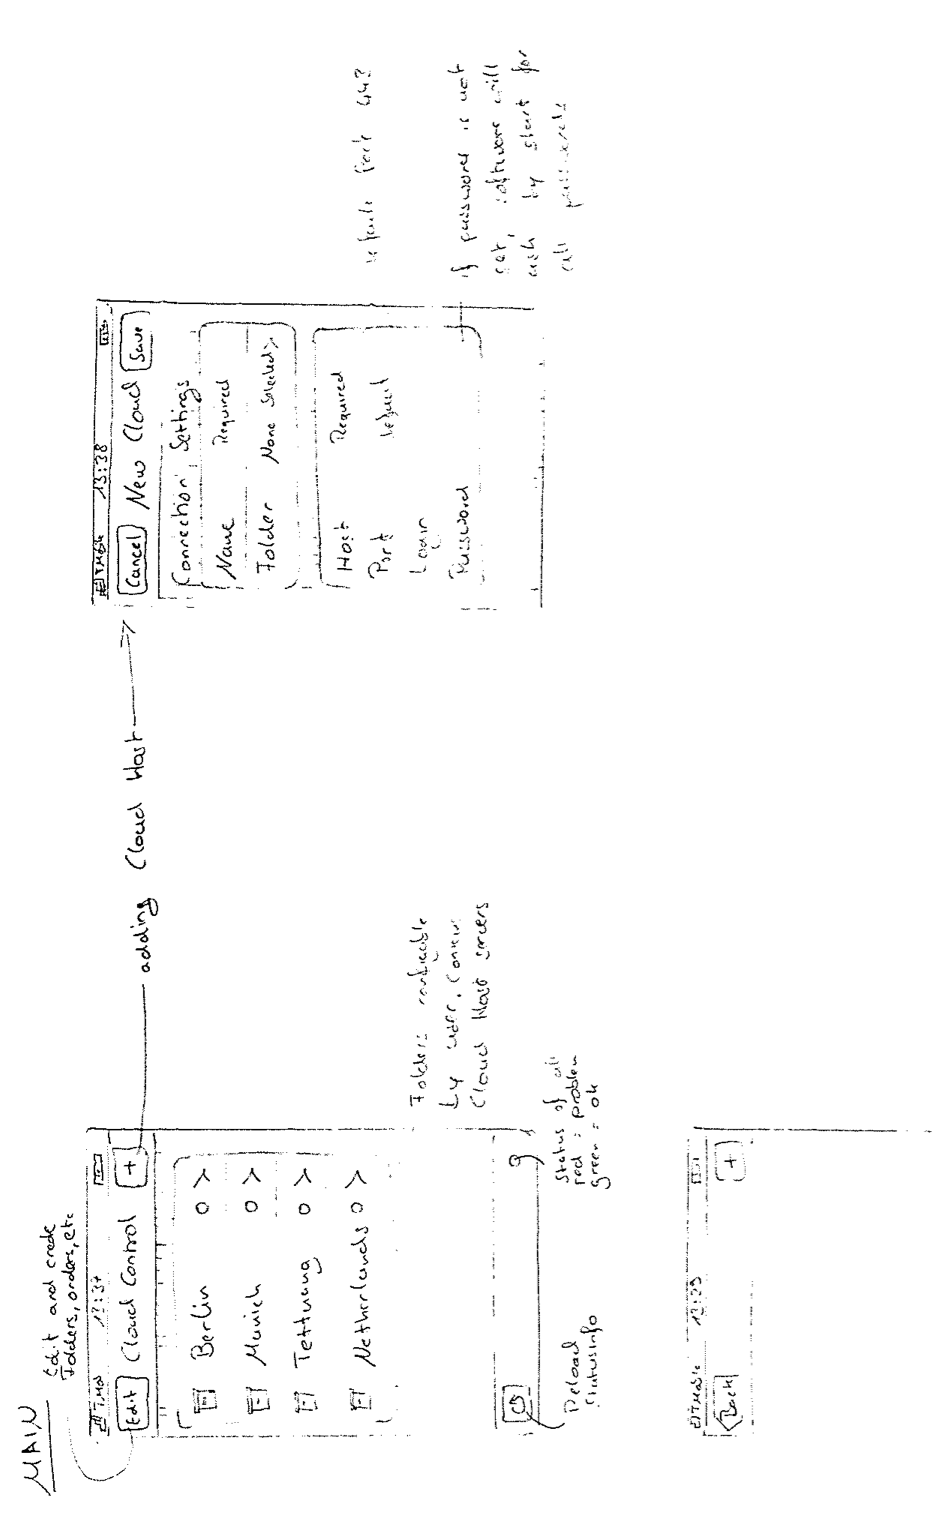 MAIN
Edit and create
Folders, orders, etc
13:37
Edit Cloud Control +
Berlin 0 >
Munich 0 >
Tettnang 0 >
Netherlands 0 >
Reload
Statusinfo
Status of all
red = problem
green = ok
Folders
by user,
Cloud Host servers
adding Cloud Host
T-Mobile 13:38
Cancel New Cloud Save
Connection Settings
Name Required
Folder None Selected >
Host Required
Port default
Login
Password
default Port 443
if password is not
set, software will
ask by start for
all passwords
T-Mobile 13:39
Back +